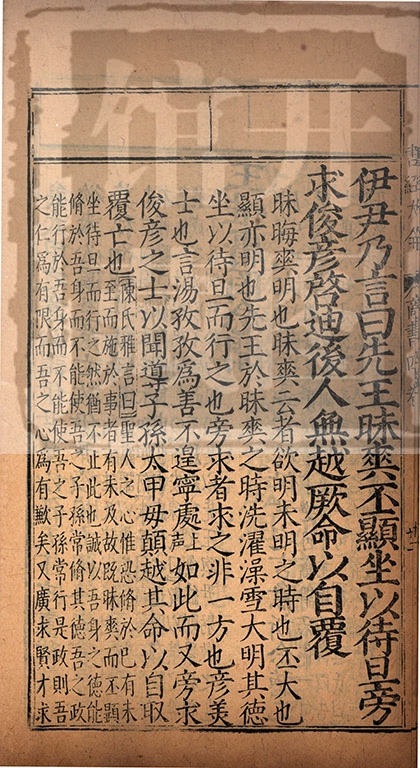 伊尹乃言曰先王昧爽丕顯坐以待旦旁
求俊彦啓迪後人無越厥命以自覆
昧晦爽明也昧爽云者欲明未明之時也丕大也
顯亦明也先王於昧爽之時洗濯澡雪大明其德
坐以待旦而行之也旁求者求之非一方也彦美
士也言湯孜孜爲善不遑寧處上聲如此而又旁求
俊彦之士以開導子孫太甲毋顛越其命以自取
覆亡也陳氏雅言曰聖人之心惟恐脩於已有未
至而施於事者有未及故既昧爽而丕顯
坐待旦而行之然猶不止此也誠以吾身之德能
脩於吾身而不能使吾之子孫常脩其德吾之政
能行於吾身而不能使吾之子孫常行是政則吾
之仁爲有限而吾之心爲有歉矣又廣求賢才求